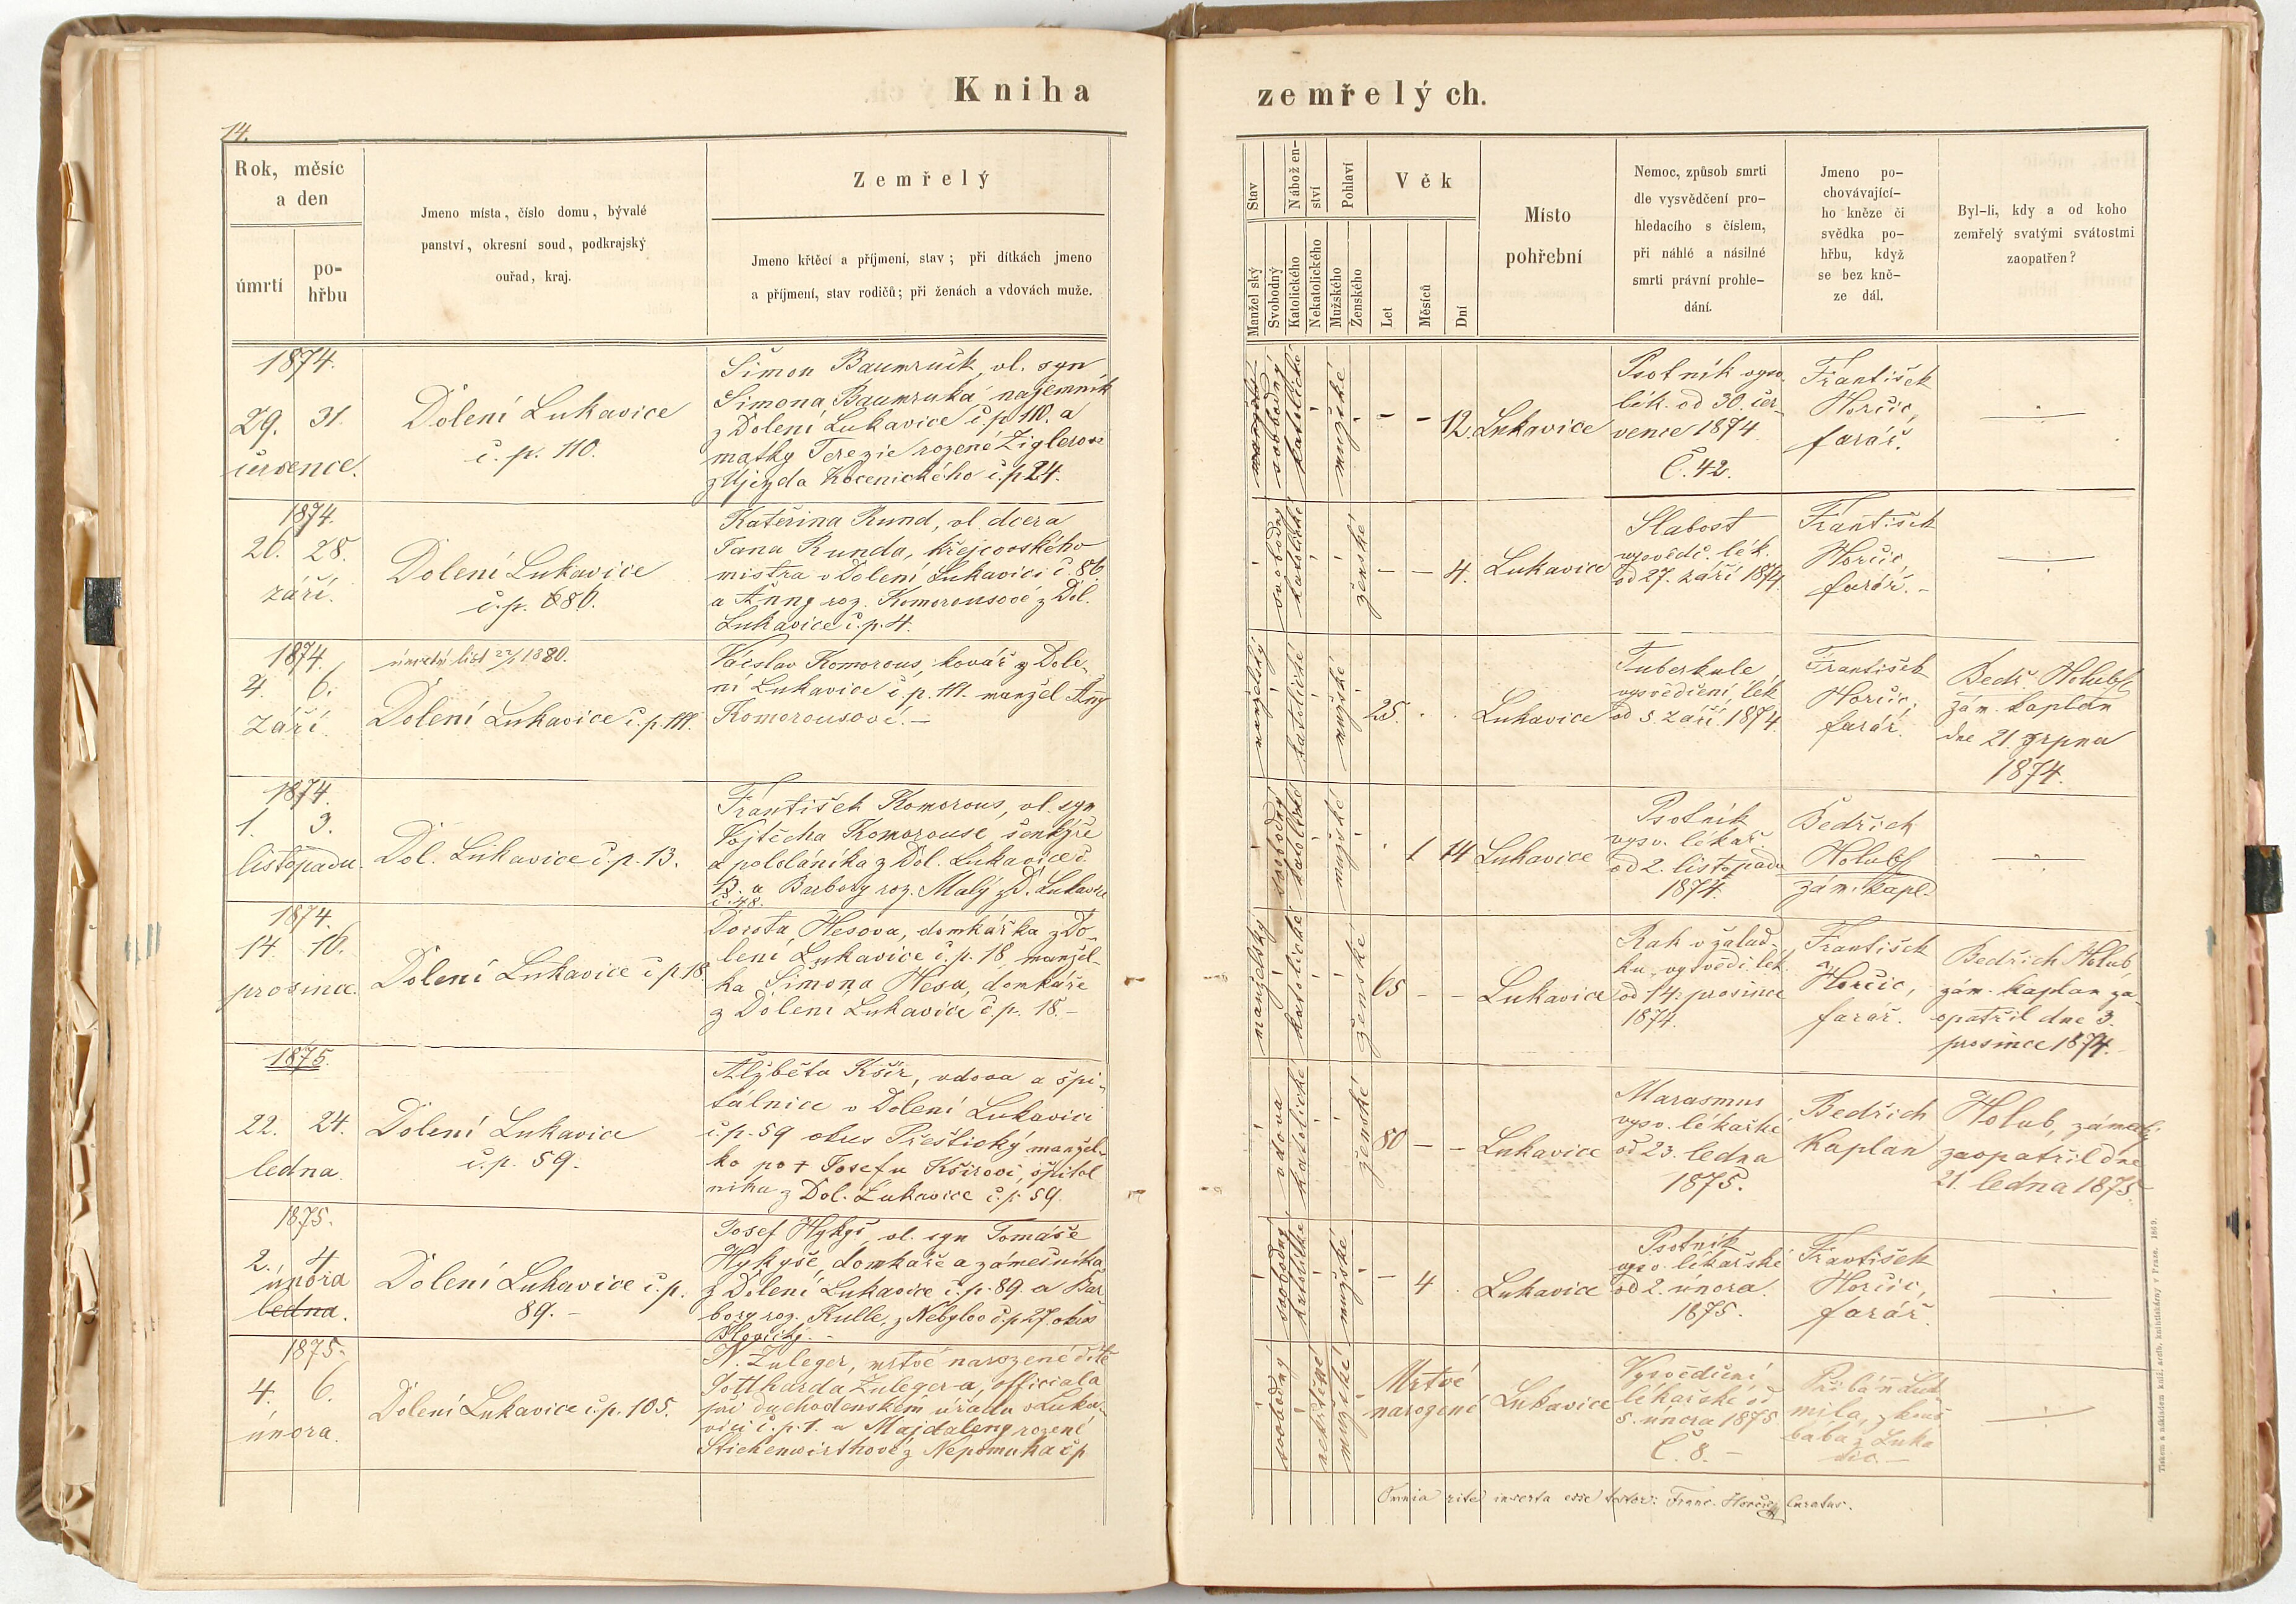 Kniha
zemřelých.
14.
Rok, měsíc
a den
úmrtí
po-
hřbu
Jmeno místa, číslo domu, bývalé
panství, okresní soud, podkrajský
ouřad, kraj.
Zemřelý
Jmeno křtěcí a příjmení, stav; při dítkách jmeno
a příjmení, stav rodičů; při ženách a vdovách muže.
Stav
Manželský
Svobodný
Nábožen-
ství
Katolického
Nekatolického
Pohlaví
Mužského
Ženského
Věk
Let
Měsíců
Dní
Místo
pohřební
Nemoc, způsob smrti
dle vysvědčení pro-
hledacího s číslem,
při náhlé a násilné
smrti právní prohle-
dání.
Jmeno po-
chovávající-
ho kněze či
svědka po-
hřbu, když
se bez kně-
ze dál.
Byl-li, kdy a od koho
zemřelý svatými svátostmi
zaopatřen?
1874.
29. 31.
července.
Dolení Lukavice
č. p. 110.
Šimon Baumruck, vl. syn
Šimona Baumruka, najemník
z Dolení Lukavice č. p. 110. a
matky Terezie rozené Ziglerov
z Ujezda Kocenického č. p. 24.
svobodný
katolické
mužské
- - 12.
Lukavice
Psotník vysv.
lék. od 30. čer-
vence 1874
Č. 42.
František
Horčic,
farář.
1874.
26. 28.
září.
Dolení Lukavice
č. p. 86.
Kateřina Rund, vl. dcera
Jana Runda, krejcovského
mistra v Dolení Lukavici č. 86.
a Anny roz. Komorousové z Dol.
Lukavice č. p. 4.
svobodný
katolické
ženské
- - 4.
Lukavice
Slabost
vysvědč. lék.
od 27. září 1874.
František
Horčic,
farář. -
1874.
4. 6.
Září.
úmrtní list 22/1 1880.
Dolení Lukavice č. p. 111.
Václav Komorous, kovář z Dole-
ní Lukavice č. p. 111. manžel Anny
Komorousové. -
manželský
katolické
mužské
25. . .
Lukavice
Tuberkule,
vysvědčení lék
od 5. září 1874.
František
Horčic,
farář.
Bedř. Holub,
zám. kaplan
dne 21. srpna
1874.
1874.
1. 3.
listopadu.
Dol. Lukavice č. p. 13.
František Komorous, vl. syn
Vojtěcha Komorouse šenkýře
a pololáníka z Dol. Lukavice č.
13. a Barbory roz. Malý z D. Lukavice
č. 48.
svobodný
katolické
mužské
. 1 14
Lukavice
Psotník
vysv. lékař.
od 2. listopadu
1874.
Bedřich
Holub,
zám. kapl.
1874.
14. 16.
prosince.
Dolení Lukavice č p 18.
Dorota Hesova, domkářka z Do-
lení Lukavice č. p. 18 manžel-
ka Šimona Hesa, domkáře
z Dolení Lukavice č. p. 18. -
manželský
katolické
ženské
65 - -
Lukavice
Rak v žalud-
ku, vysvědč. lék.
od 14. prosince
1874.
František
Horčic,
farář.
Bedřich Holub
zám. kaplan za-
opatřil dne 3.
prosince 1874.
1875.
22. 24.
ledna.
Dolení Lukavice
č. p. 59.
Alžběta Kšír, vdova a špi-
tálnice v Dolení Lukavici
č. p. 59 okres Přeštický manžel-
ka po + Josefu Kšírovi, špital
níku z Dol. Lukavice č. p. 59.
vdova
katolické
ženské
80 - -
Lukavice
Marasmus
vysv. lékařské
od 23. ledna
1875.
Bedřich
kaplan
Holub, zámecký
zaopatřil dne
21. ledna 1875
1875.
2. 4
února
ledna.
Dolení Lukavice č. p.
89. -
Josef Hykyš, vl. syn Tomáše
Hykyše, domkáře a zámečníka
z Dolení Lukavice č. p. 89. a Bar
bory roz. Kulle, z Nebylov č. p 27. okres
Blovický. -
svobodný
katolické
mužské
- 4 .
Lukavice
Psotník
vysv. lékařské
od 2. února.
1875.
František
Horčic,
farář.
1875.
4. 6.
února.
Dolení Lukavice č. p. 105.
N. Zuleger, mrtvě narozené dítě
Gottharda Zuleger-a, officiala
při duchodenském úřadu v Luka-
vici č. p. 1. a Majdaleny rozené
Stichenwirthové z Nepomuka č p
svobodný
nekřtěné
mužské
Mrtvě
narozené
Lukavice
Vysvědčení
lékařské od
5. února 1875
Č. 8. -
mila, zkouš
baba z Luka
vic. -
Omnia rite inserta esse testor: Franc. Horčic, Curatus.
Tiskem a nákladem kníž. arcib. knihtiskárny v Praze. 1869.